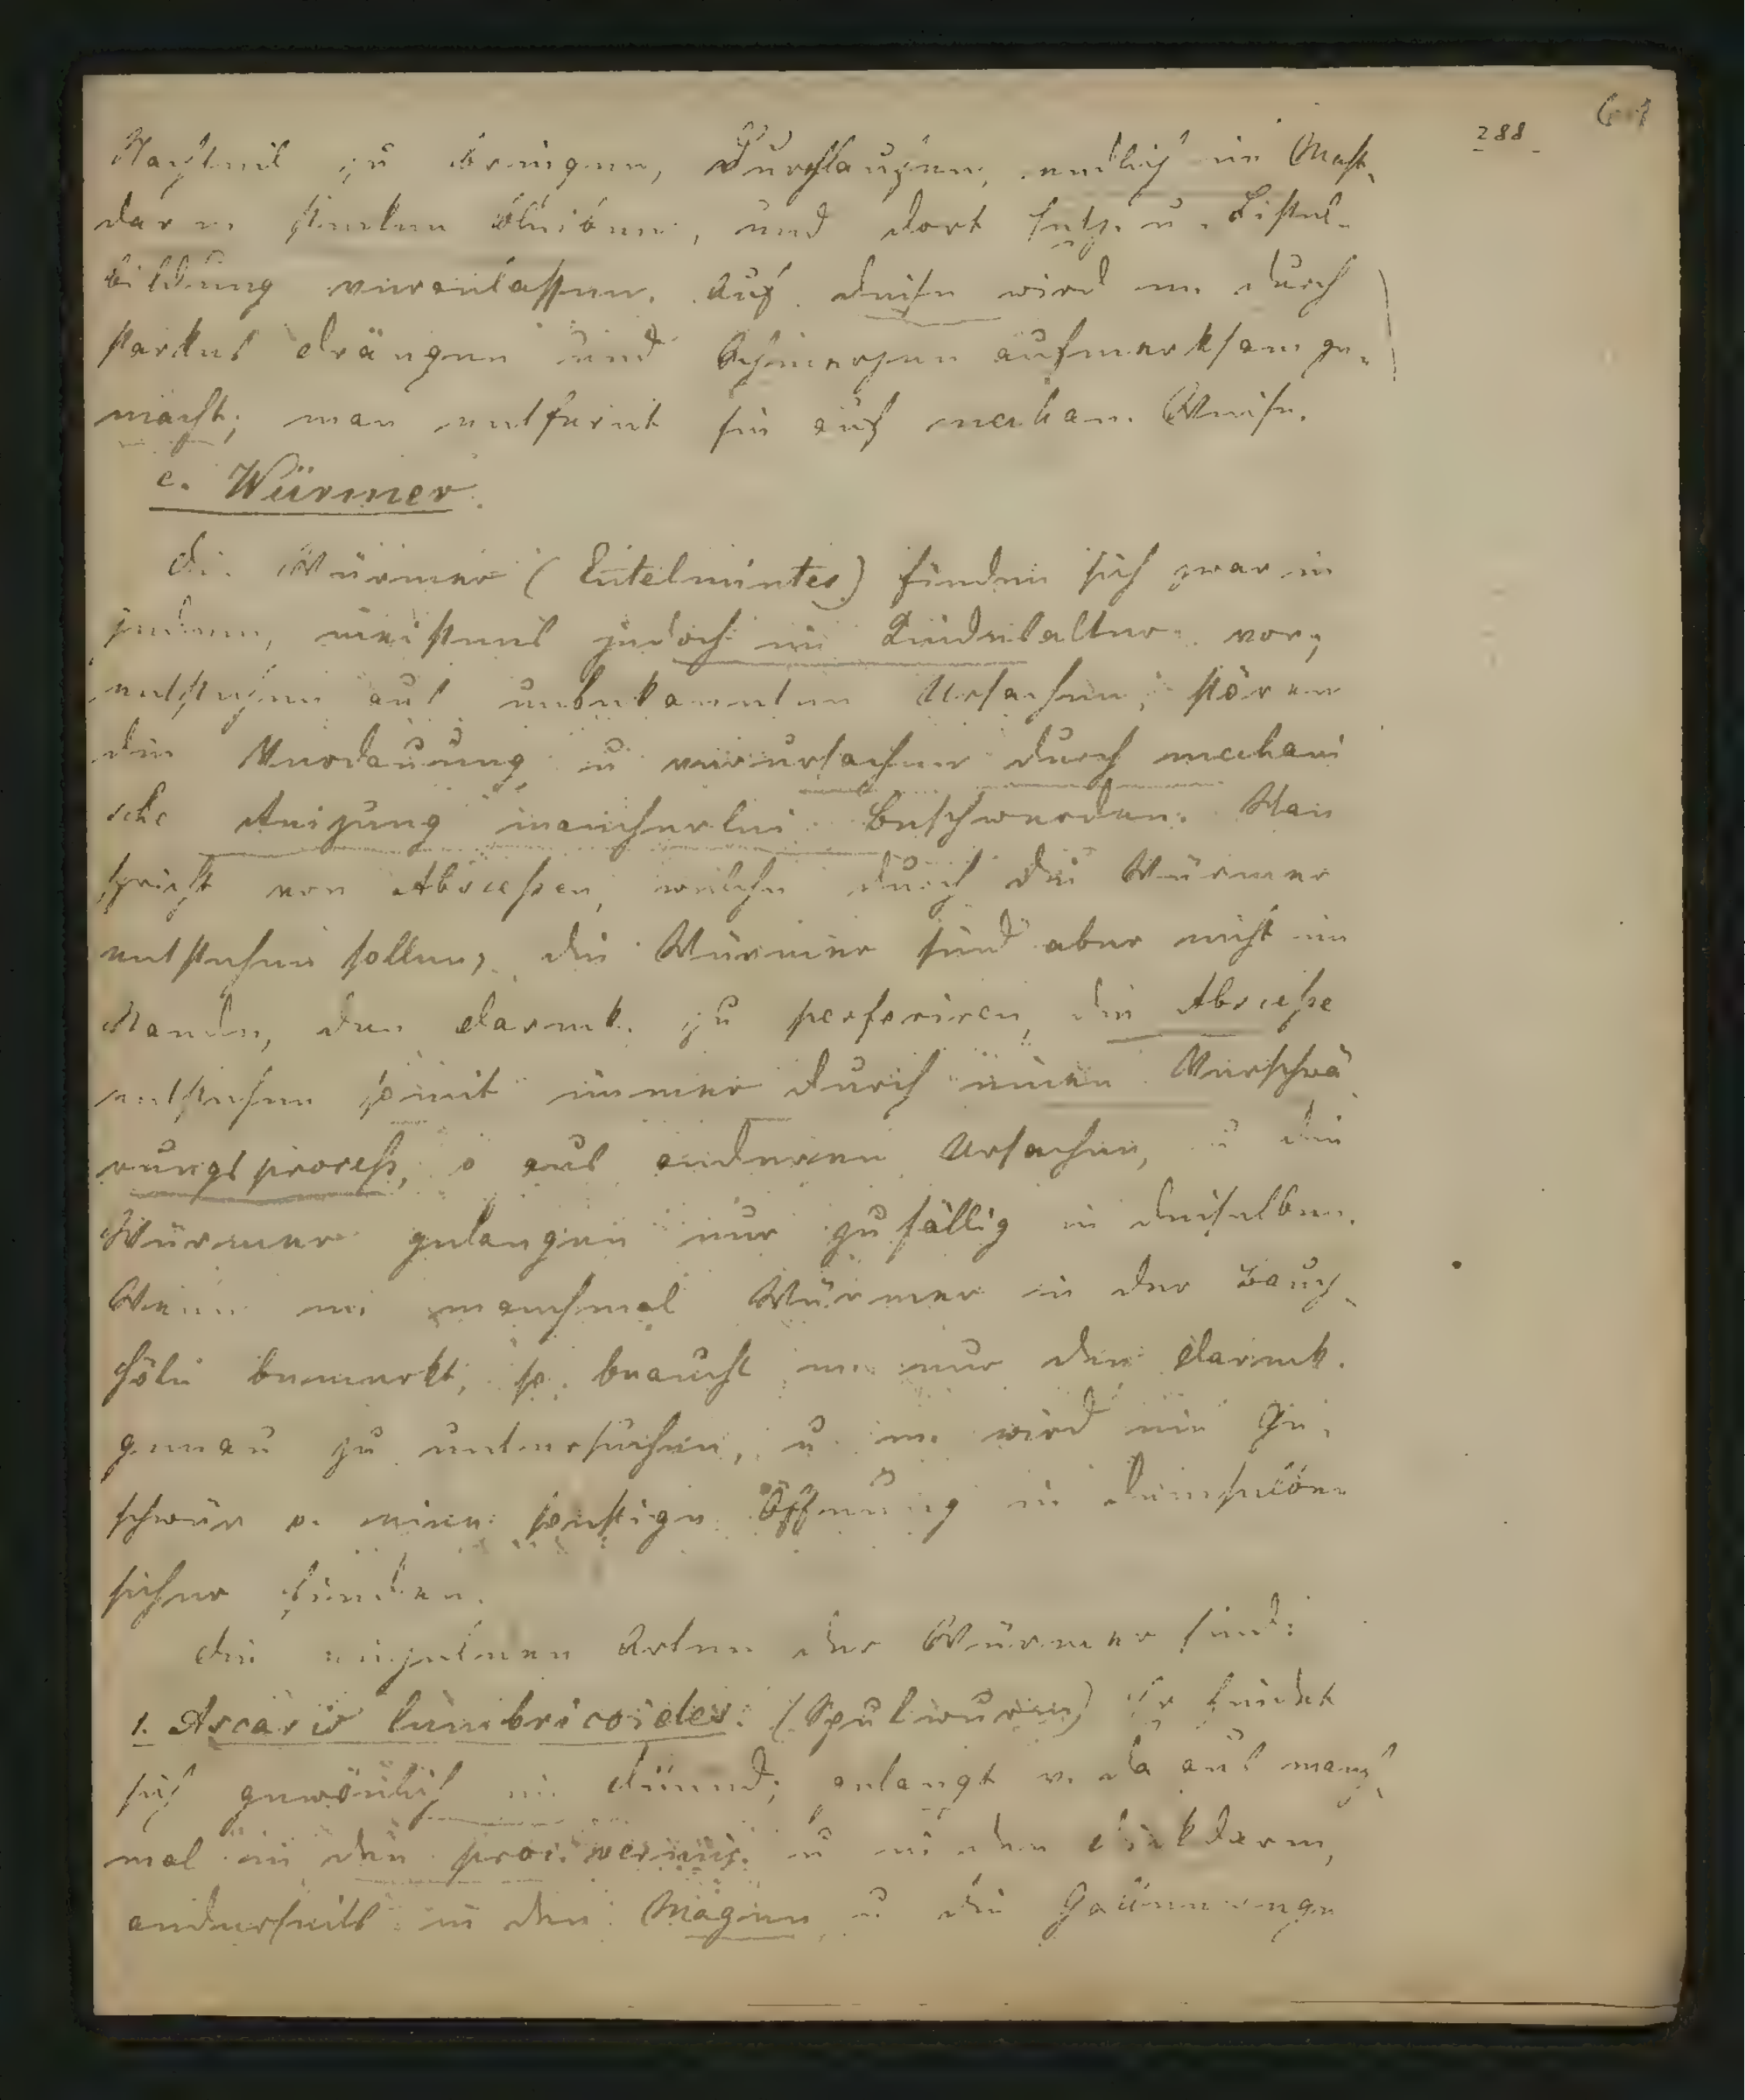 288
Nachteil zu bringen, durchlaufen, endlich im Mast-
darm stecken bleiben, und dort Entz. u. Fistel-
bildung veranlassen. Auf diese wird m. durch
starkes drängen und Schmerzen aufmerksam ge-
macht; man entfernt sie auf mechan. Weise.
c. Würmer.
Die Würmer (Entelmintes) finden sich zwar in
jedem, meistens jedoch im Kindesalter vor;
entstehen aus unbekannten Ursachen; stören
die Verdauung u verursachen durch mechani
sche Reizung mancherlei Beschwerden. Man
spricht von Abscessen, welche durch die Würmer
entstehen sollen; die Würmer sind aber nicht im
Stande, den darmk. zu perforiren, die Abscesse
entstehen somit immer durch einen Verschwä
rungsprocess, o aus anderen Ursachen, u die
Würmer gelangen nur zufällig in dieselben.
Wenn m. manchmal Würmer in der Bauch-
höle bemerkt, so braucht m. nur den darmk.
genau zu untersuchen, u. m. wird ein Ge-
schwür o. eine sonstige Öffnung in demselben
sicher finden.
Die einzelnen Arten der Würmer sind:
1. Ascaris lumbricoides. (Spulwurm) Er findet
sich gewönlich im dünnd; gelangt v. da aus manch-
mal in den proc. vermif. u in den dickdarm,
anderseits in den Magen u die Gallenwege